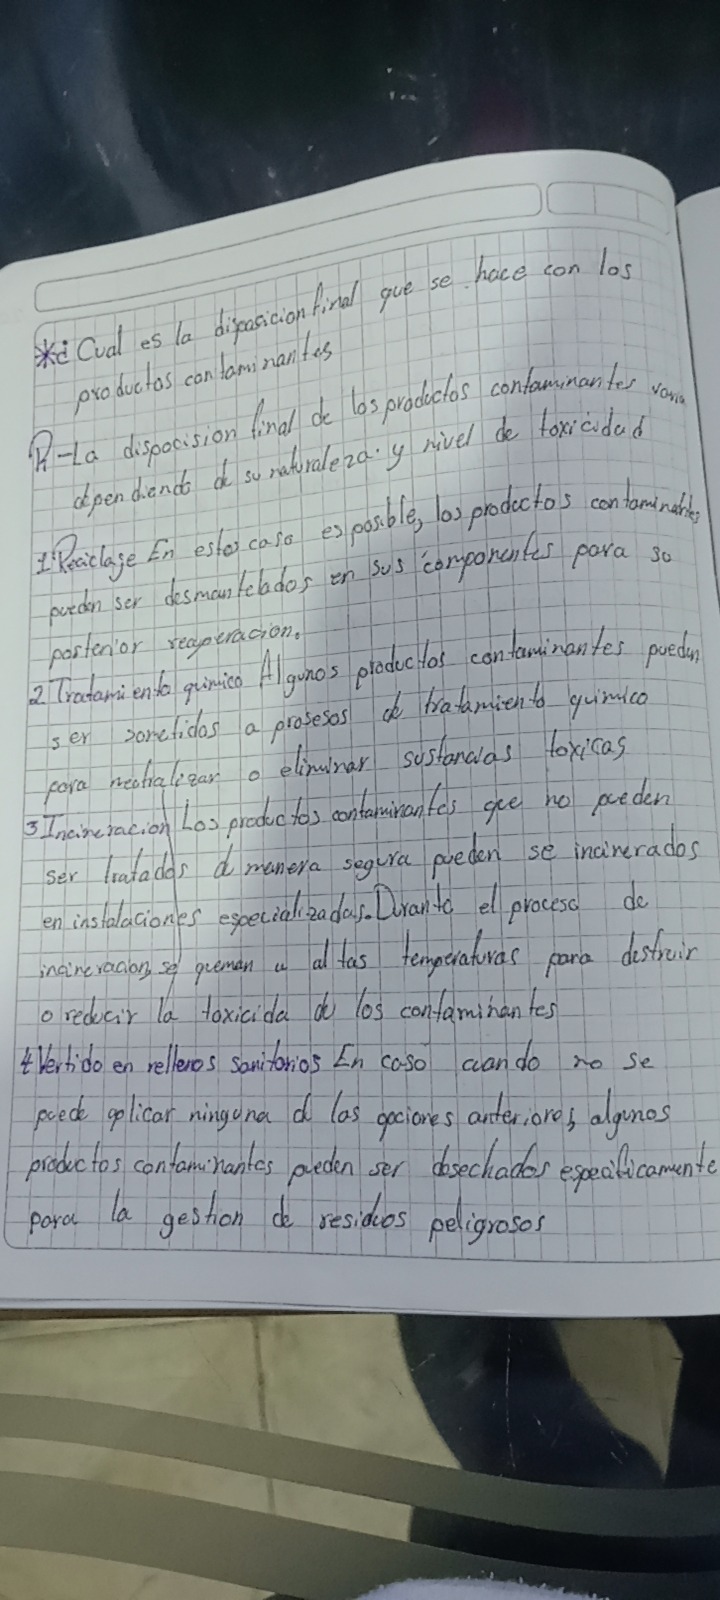 *¿ Cual es la disposicion final que se hace con los
productos contaminantes
R-La dispocision final de los productos contaminantes varia
dependiendo de su naturaleza y nivel de toxicidad
1 Reciclage En estos caso es posible, los productos contaminantes
pueden ser desmantelados en sus componentes para so
posterior recuperacion.
2 Tratamiento quimico Algunos productos contaminantes pueden
ser sometidos a prosesos de tratamiento quimico
para neutralizar o eliminar sustancias toxicas
3 Incineracion Los productos contaminantes que no pueden
ser tratados d manera segura pueden se incinerados
en instalaciones especializadas. Durante el proceso de
incineracion, se queman a altas temperaturas para destruir
o reducir la toxicida de los contaminantes
4 Vertido en rellenos sanitarios En caso cuando no se
puede aplicar ninguna d las opciones anteriores, algunos
productos contaminantes pueden ser desechados especificamente
para la gestion de residuos peligrosos